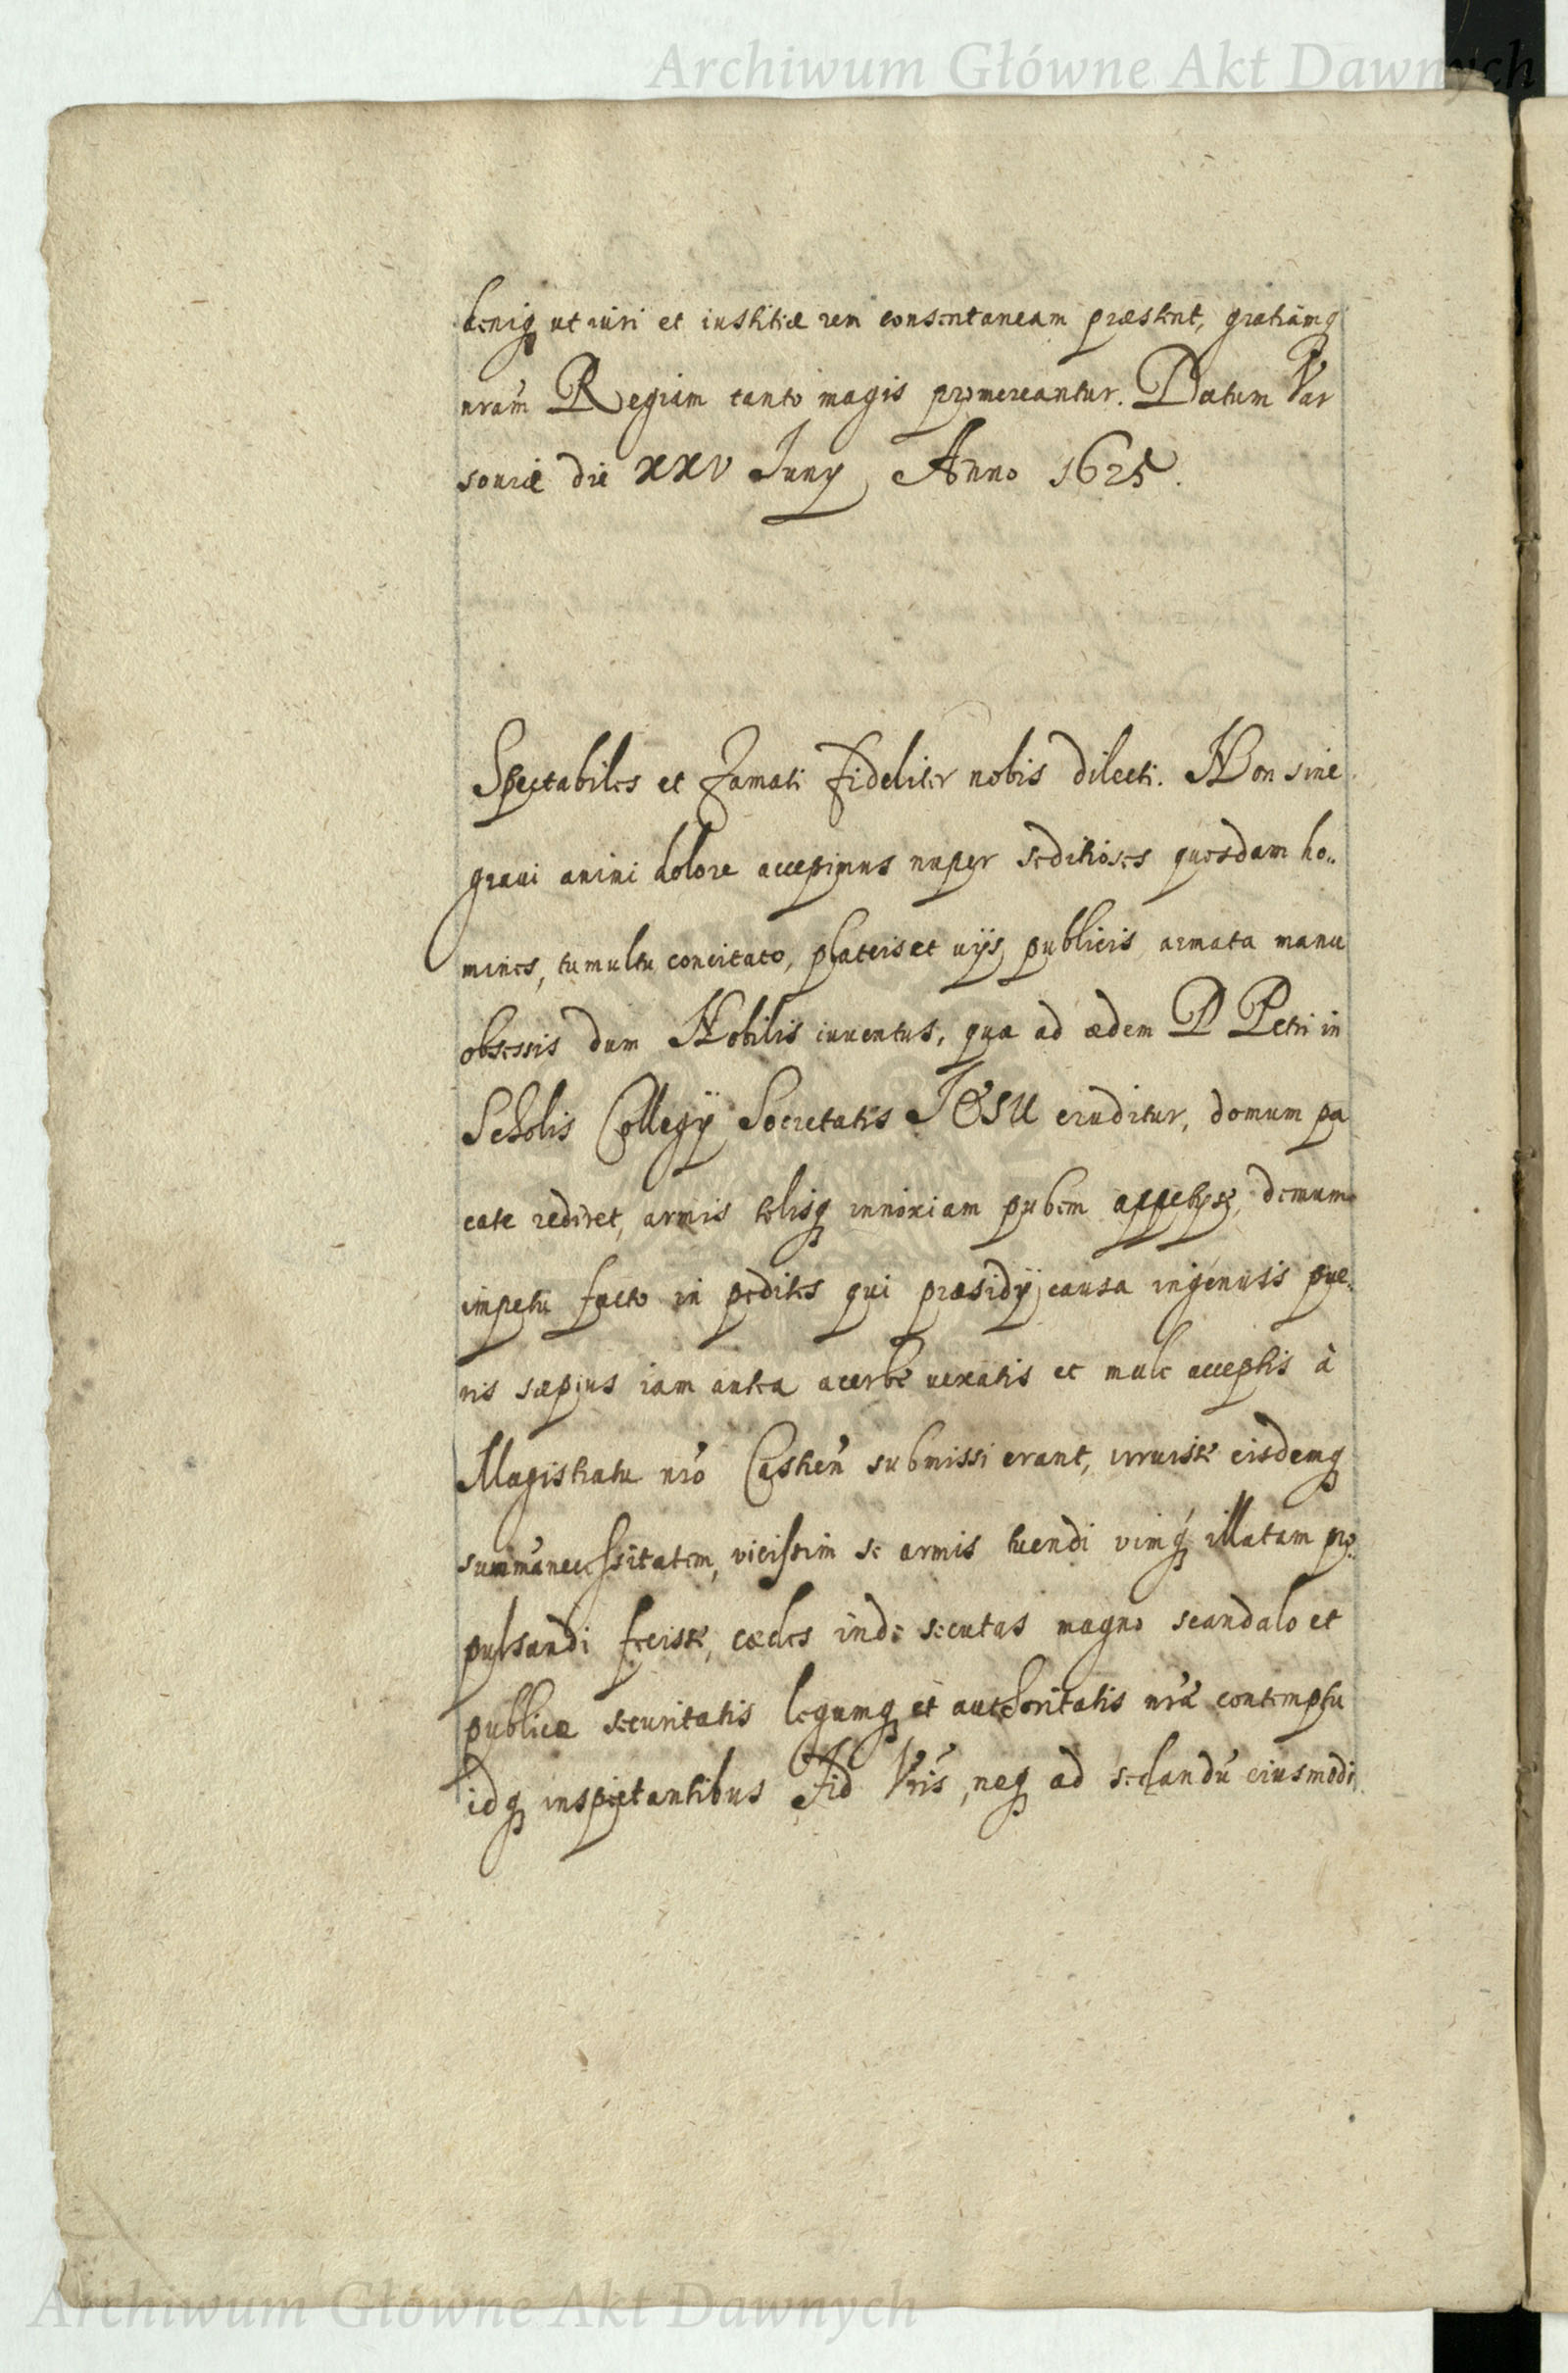 Archiwum Główne Akt Dawnych
deniq ut iuri et iustitiæ rem consentaneam præstent, gratiamq
nram Regiam tanto magis promereantur. Datum Var
souiæ die XXV Juny Anno 1625.
Spectabiles et Famati fideliter nobis dilecti. Non sine
graui animi dolore accepimus nuper seditiosos quosdam ho..
mines, tumultu concitato, plateis et uijs publicis armata manu
obsessis dum Nobilis iuuentus, qua ad ædem D Petri in
Scholis Collegÿ Societatis JESU eruditur, domum pa
cate rediret, armis telisq innoxiam pubem appetysse, demum
impetu facto in pedites qui præsidÿ causa ingenuis pue.
ris sæpius iam antea acerbè uexatis et male acceptis à
Magistratu nro Castren submissi erant, irruisse eisdemq
summã necessitatem, vicissim se armis tuendi vimq illatam pro.
pulsandi fecisse, cædes inde secutas magno scandalo et
publicæ securitatis legumq et authoritatis nræ contemptu
idq inspectantibus Fid Vris, neq ad sedandũ eiusmodi
Archiwum Główne Akt Dawnych